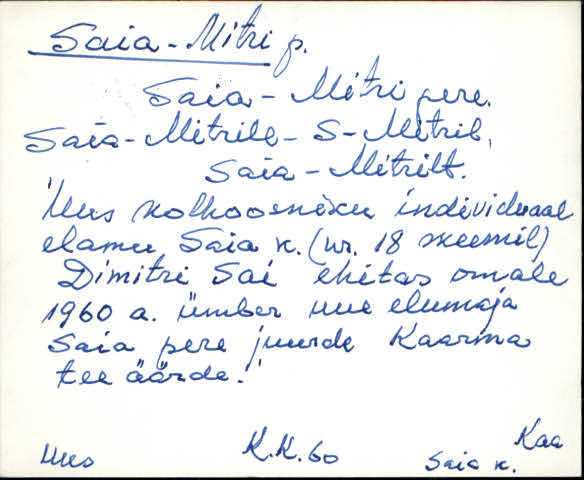 Saia-Mitri p.
Saia-Mitri pere.
Saia-Mitrile - S-Mitril,
Saia-Mitrilt.
"Uus kolhoosniku individuaal
elamu Saia k. (nr. 18 skeemil)
Dimitri Sai ehitas omale
1960 a. ümber uue elumaja
Saia pere juurde Kaarma
tee äärde."
Kaa
Uus K.K. 60 Saia k.